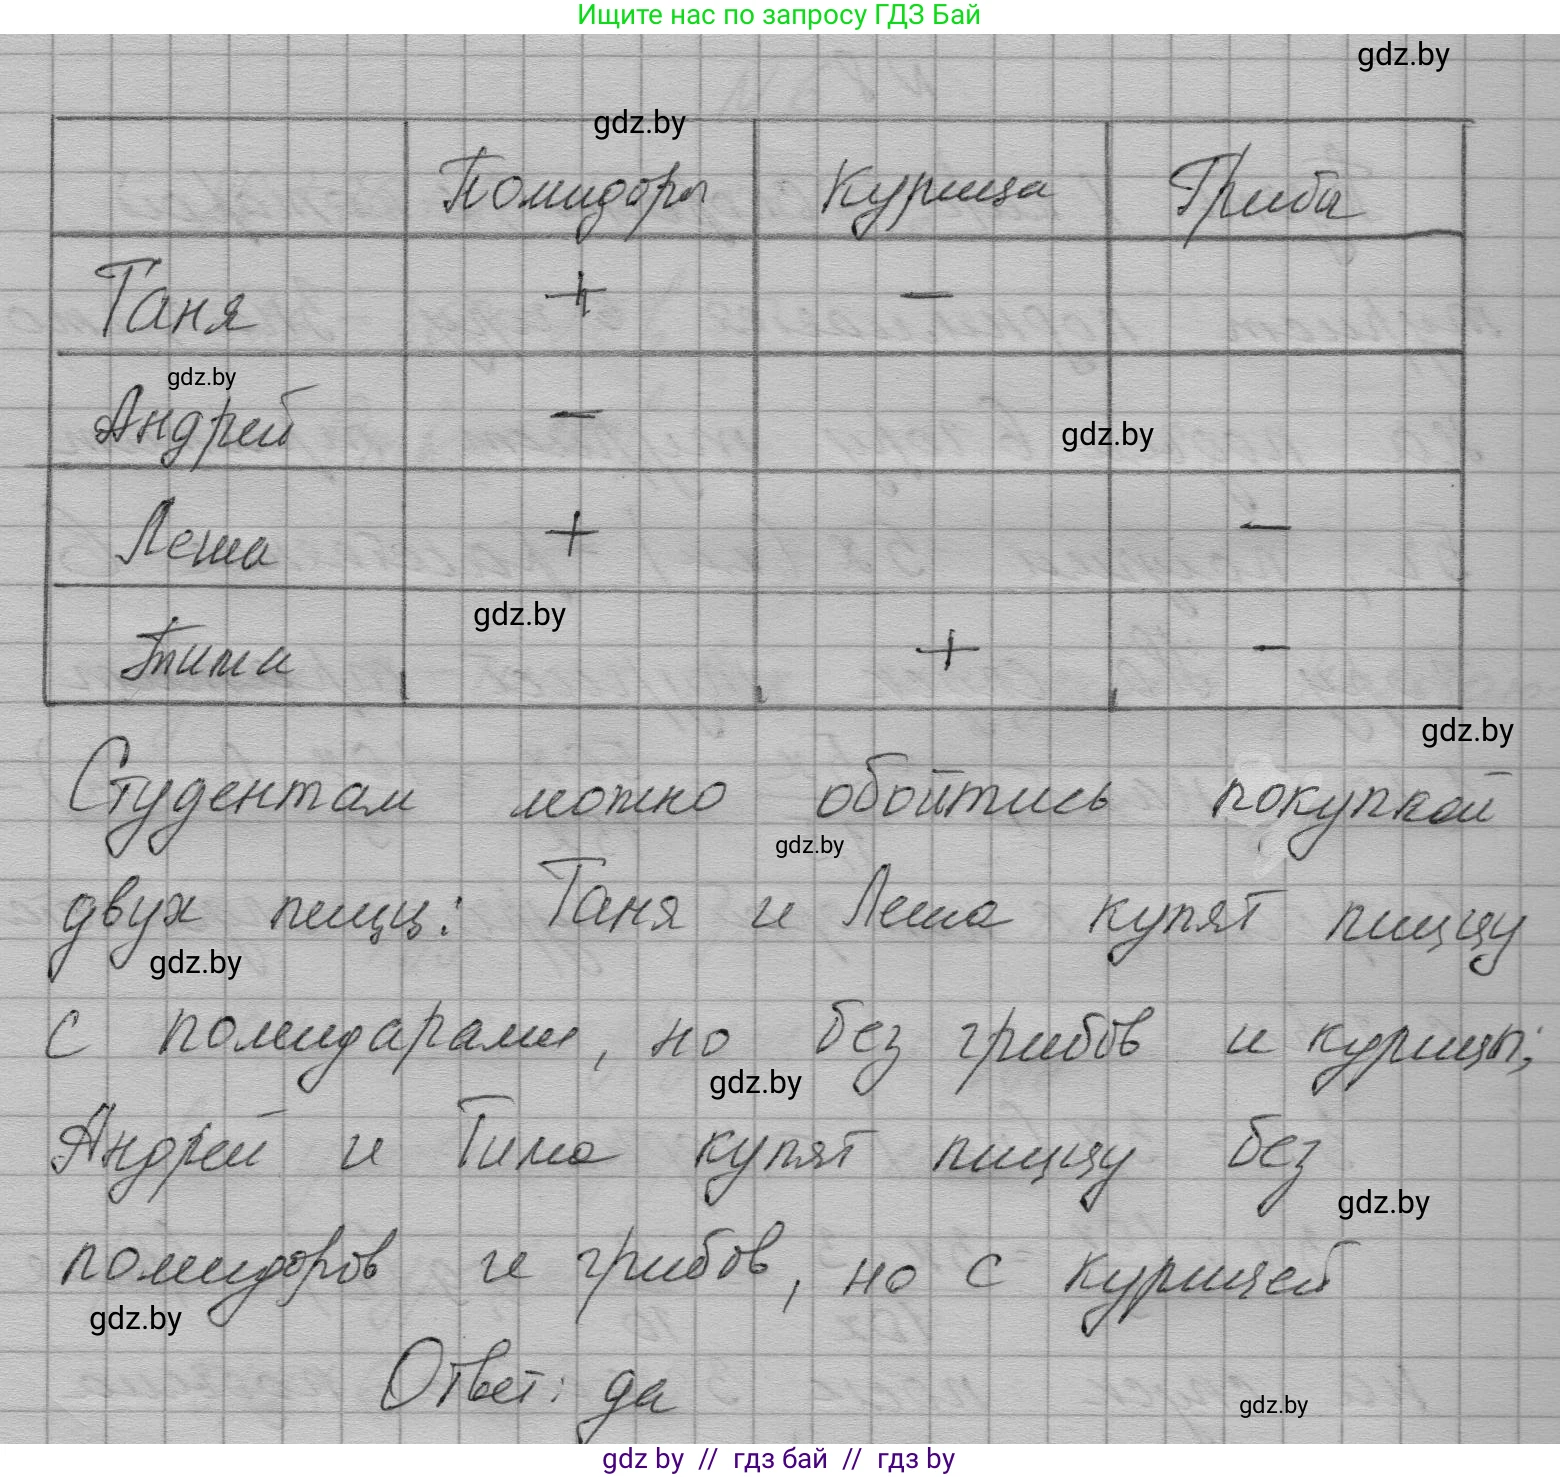 Ищите нас по запросу ГДЗ Бай
gdz.by
gdz.by
Помидоры Курица Грибы
Таня + -
gdz.by
Андрей -
gdz.by
Леша + -
gdz.by
Тима + -
gdz.by
Студентам можно обойтись покупкой
gdz.by
двух пицц: Таня и Леша купят пиццу
gdz.by
с помидарами, но без грибов и курицы;
gdz.by
Андрей и Тима купят пиццу без
gdz.by
помидоров и грибов, но с курицей
gdz.by
Ответ: да
gdz.by
gdz by // гдз бай // гдз by